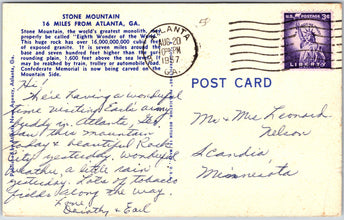 STONE MOUNTAIN
16 MILES FROM ATLANTA, GA.
Stone Mountain, the world's greatest monolith,
properly be called "Eighth Wonder of the World."
This huge rock has over 16,000,000,000 cubic
of exposed granite. It is seven miles around the
base and seven hundred feet higher than the
rounding plain, 1,686 feet above sea level. It
may be reached by train, trolley or automobile road.
Confederate Memorial is now being carved on the
Mountain Side.
Hi!
There having a wonderful
time visiting Earl's army
buddy in Atlanta, Ga.
Saw this mountain
today & beautiful Rock
City yesterday. Wonderful
weather, a little rain
yesterday. Lots of tobacco
fields along the way.
Love
Dorothy & Earl
ATLANTA
AUG 20
PM
1957
GA.
U.S. POSTAGE
3¢
LIBERTY
POST CARD
Mr & Mrs Leonard
Nelson
Scandia
Minnesota